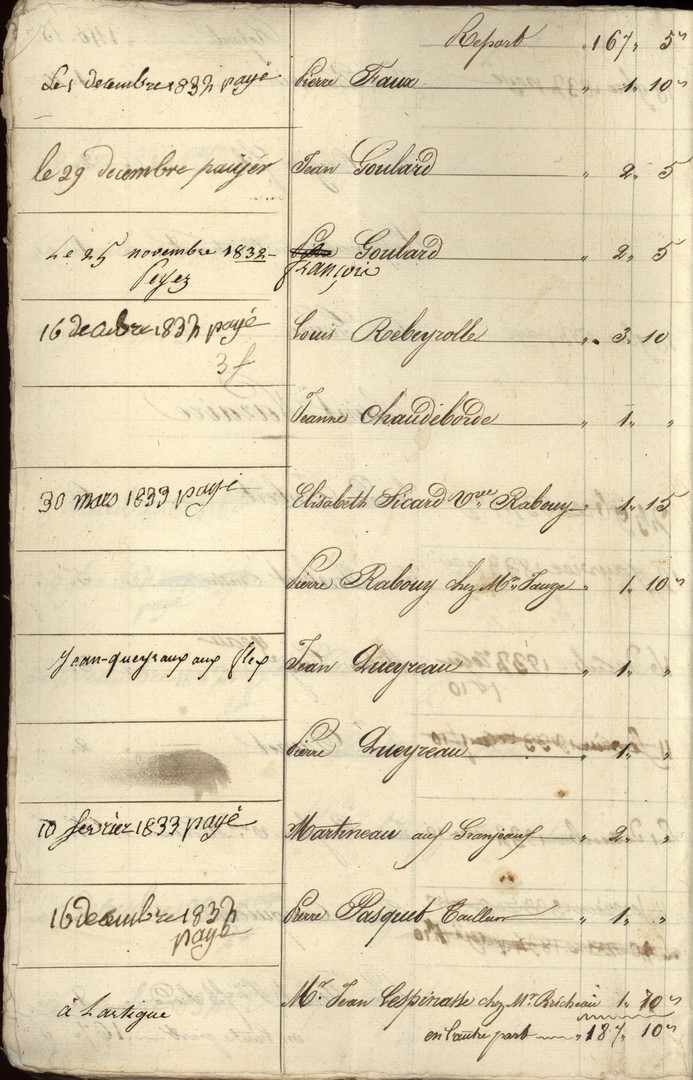 Report 167 " 5 "
Le 1 decembre 1832 payé Pierre Faux " 1 " 10 "
le 29 decembre paiyér Jean Goulard " 2 " 5
Le 25 novembre 1832 Goulard " 2 " 5
Peyez françois
16 decebre 1832 payé Louis Rebeyrolle " 3 " 10
3 f
Jeanne Chaudeborde " 1 " "
30 mars 1833 payé Elisabeth Sicard Vve Rabouy " 1 " 15
Pierre Rabouy chez Mr Fauge " 1 " 10 "
Jean-queyraux aux flex Jean Queyreau " 1 " "
Pierre Queyreau " 1 " "
10 fevrier 1833 payé Martineau aux Granjeaux " 2 " "
16 decembre 1832 Pierre Pasquet Tailleur " 1 " "
payé
à Lartigue Mr Jean Lespinasse chez Mr Bricheau 1 " 10 "
en l'autre part " 187 " 10 "